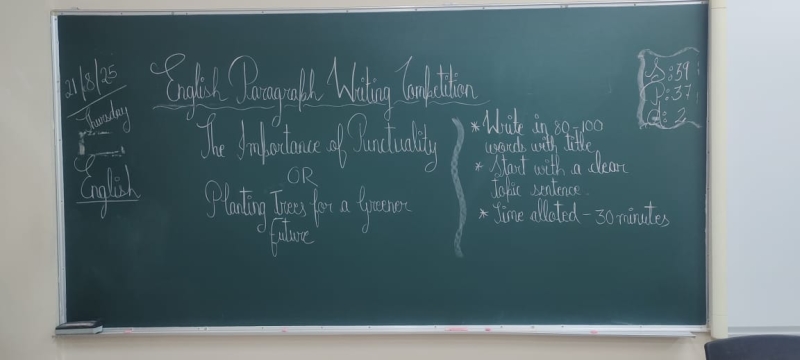 21/8/25
Thursday
English
English Paragraph Writing Competition
The Importance of Punctuality
OR
Planting Trees for a Greener
future
* Write in 80-100
words with title
* Start with a clear
topic sentence.
* Time alloted - 30 minutes
S:39
P:37
A: 2